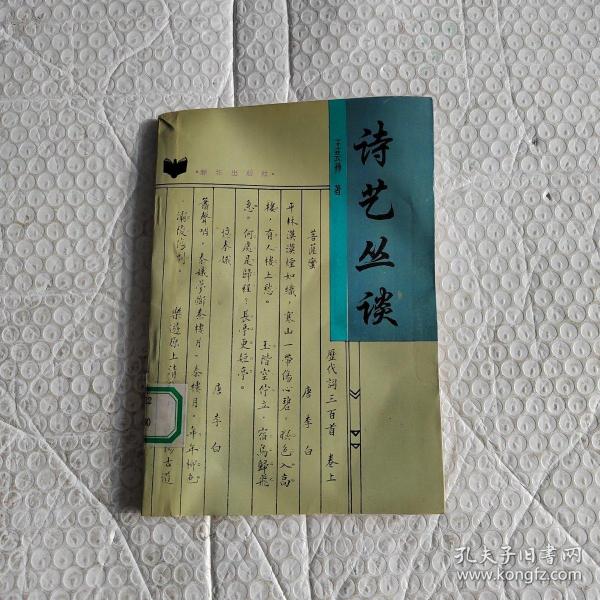 诗艺丛谈
王云 著
·新华出版社·
歷代詞三百首 卷上
菩薩蠻 唐 李白
平林漠漠煙如織，寒山一帶傷心碧。暝色入高
樓，有人樓上愁。 玉階空佇立，宿鳥歸飛
急。何處是歸程？長亭更短亭。
憶秦娥 唐 李白
簫聲咽，秦娥夢斷秦樓月。秦樓月，年年柳色
，灞陵傷別。 樂遊原上清
古道
孔夫子旧书网
www.kongfz.com